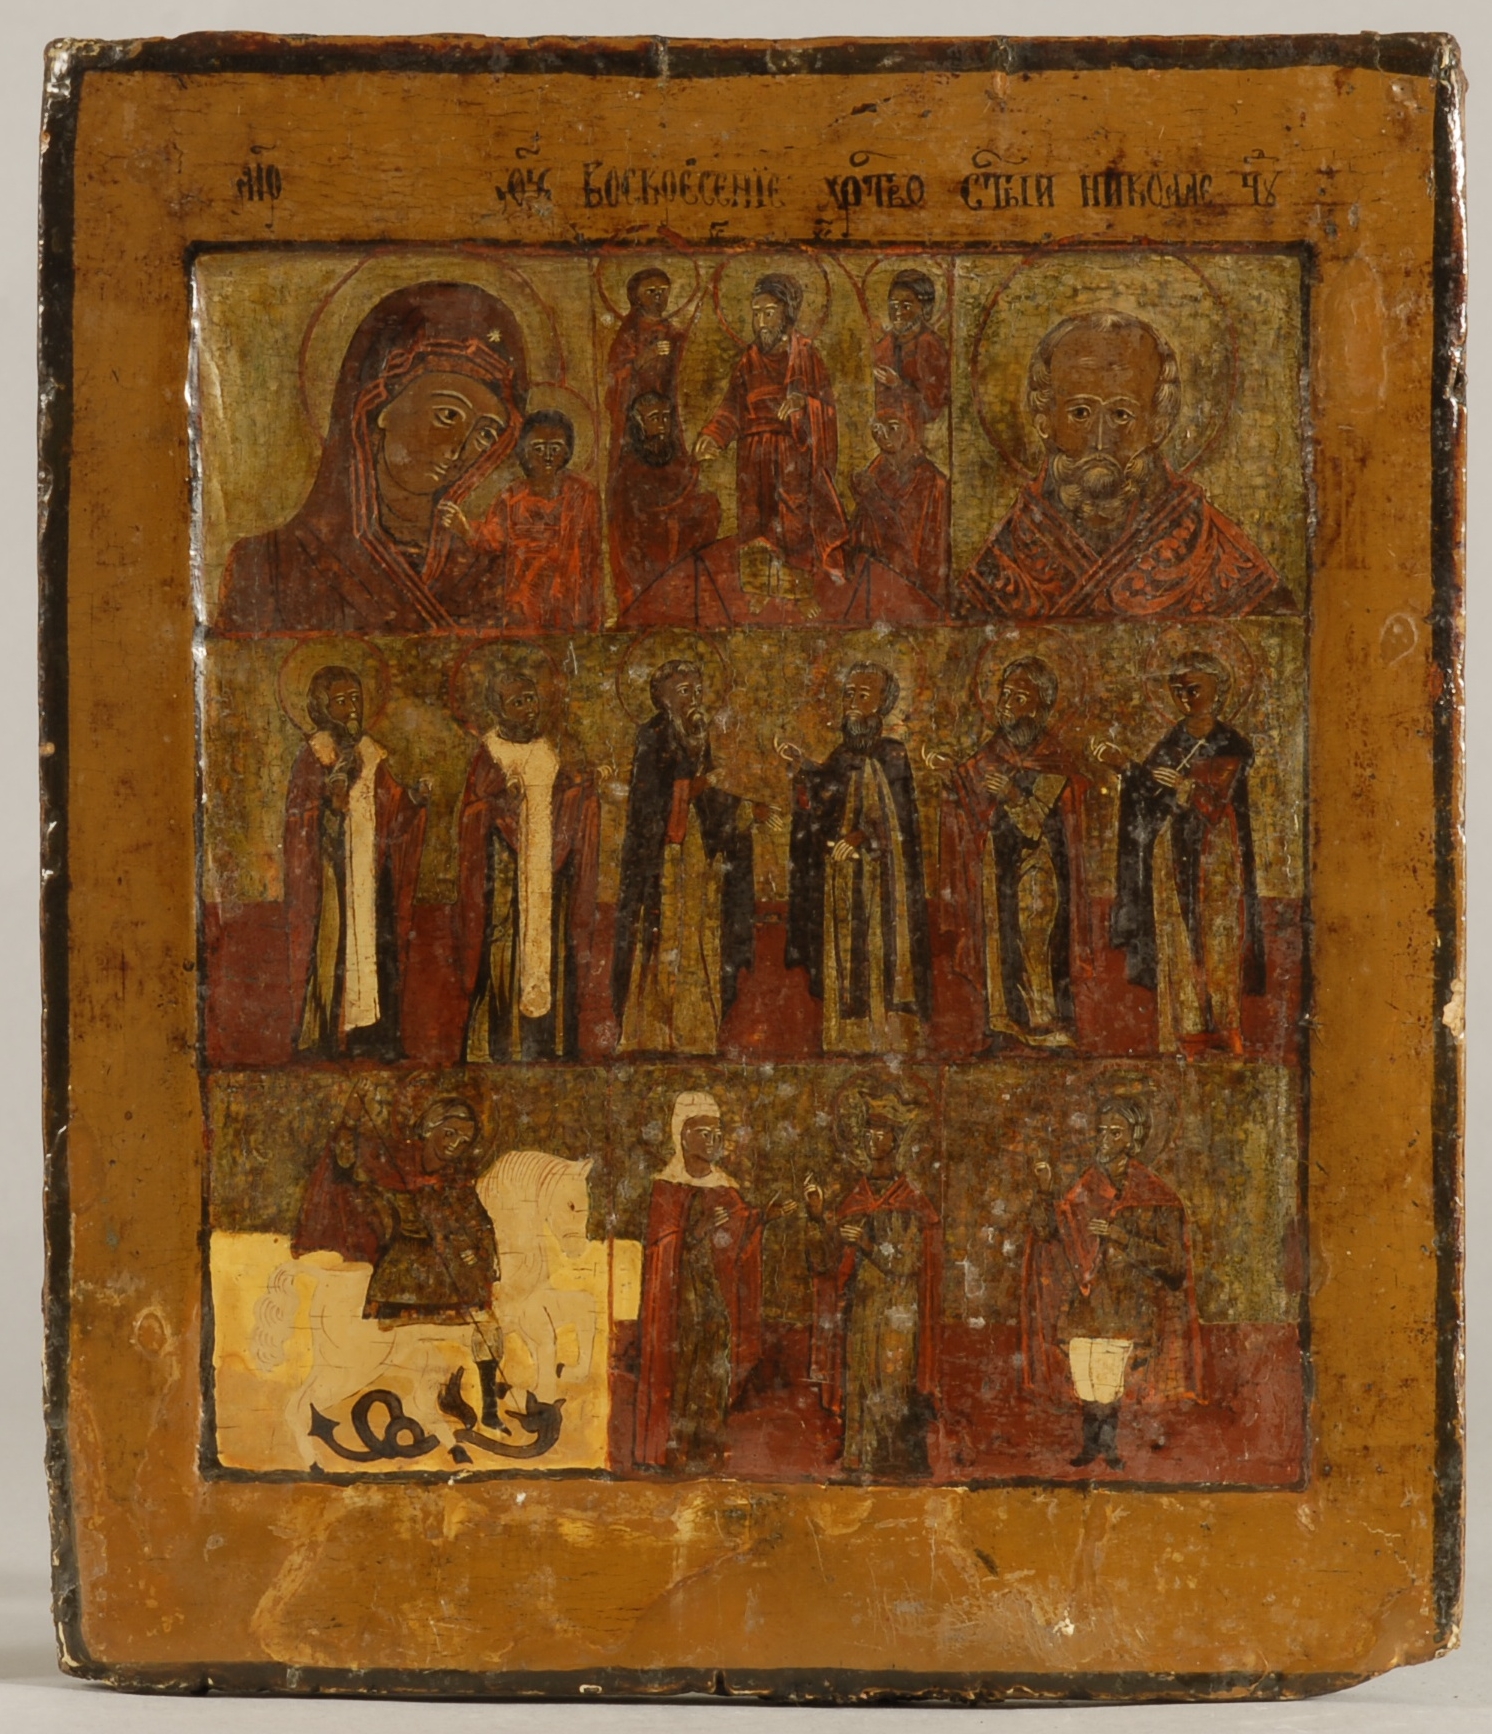 МР ѲУ ВОСКРЕСЕНIЕ ХРТВО СТЫЙ НИКОЛАЕ ЧУ